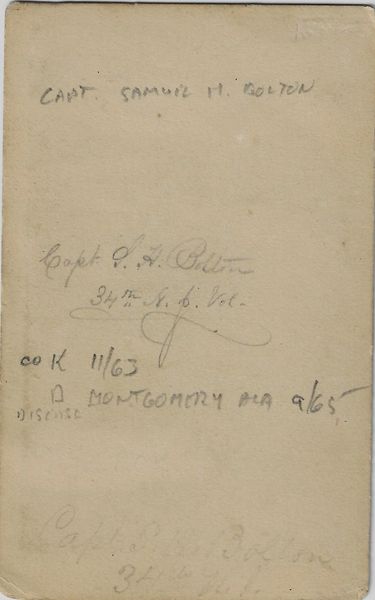 CAPT. SAMUEL H. BOLTON
Capt S. H. Bolton
34th N. J. Vol.
CO K 11/63
D MONTGOMERY ALA 9/65
DISEASE
Capt S. H. Bolton
34th N.J.